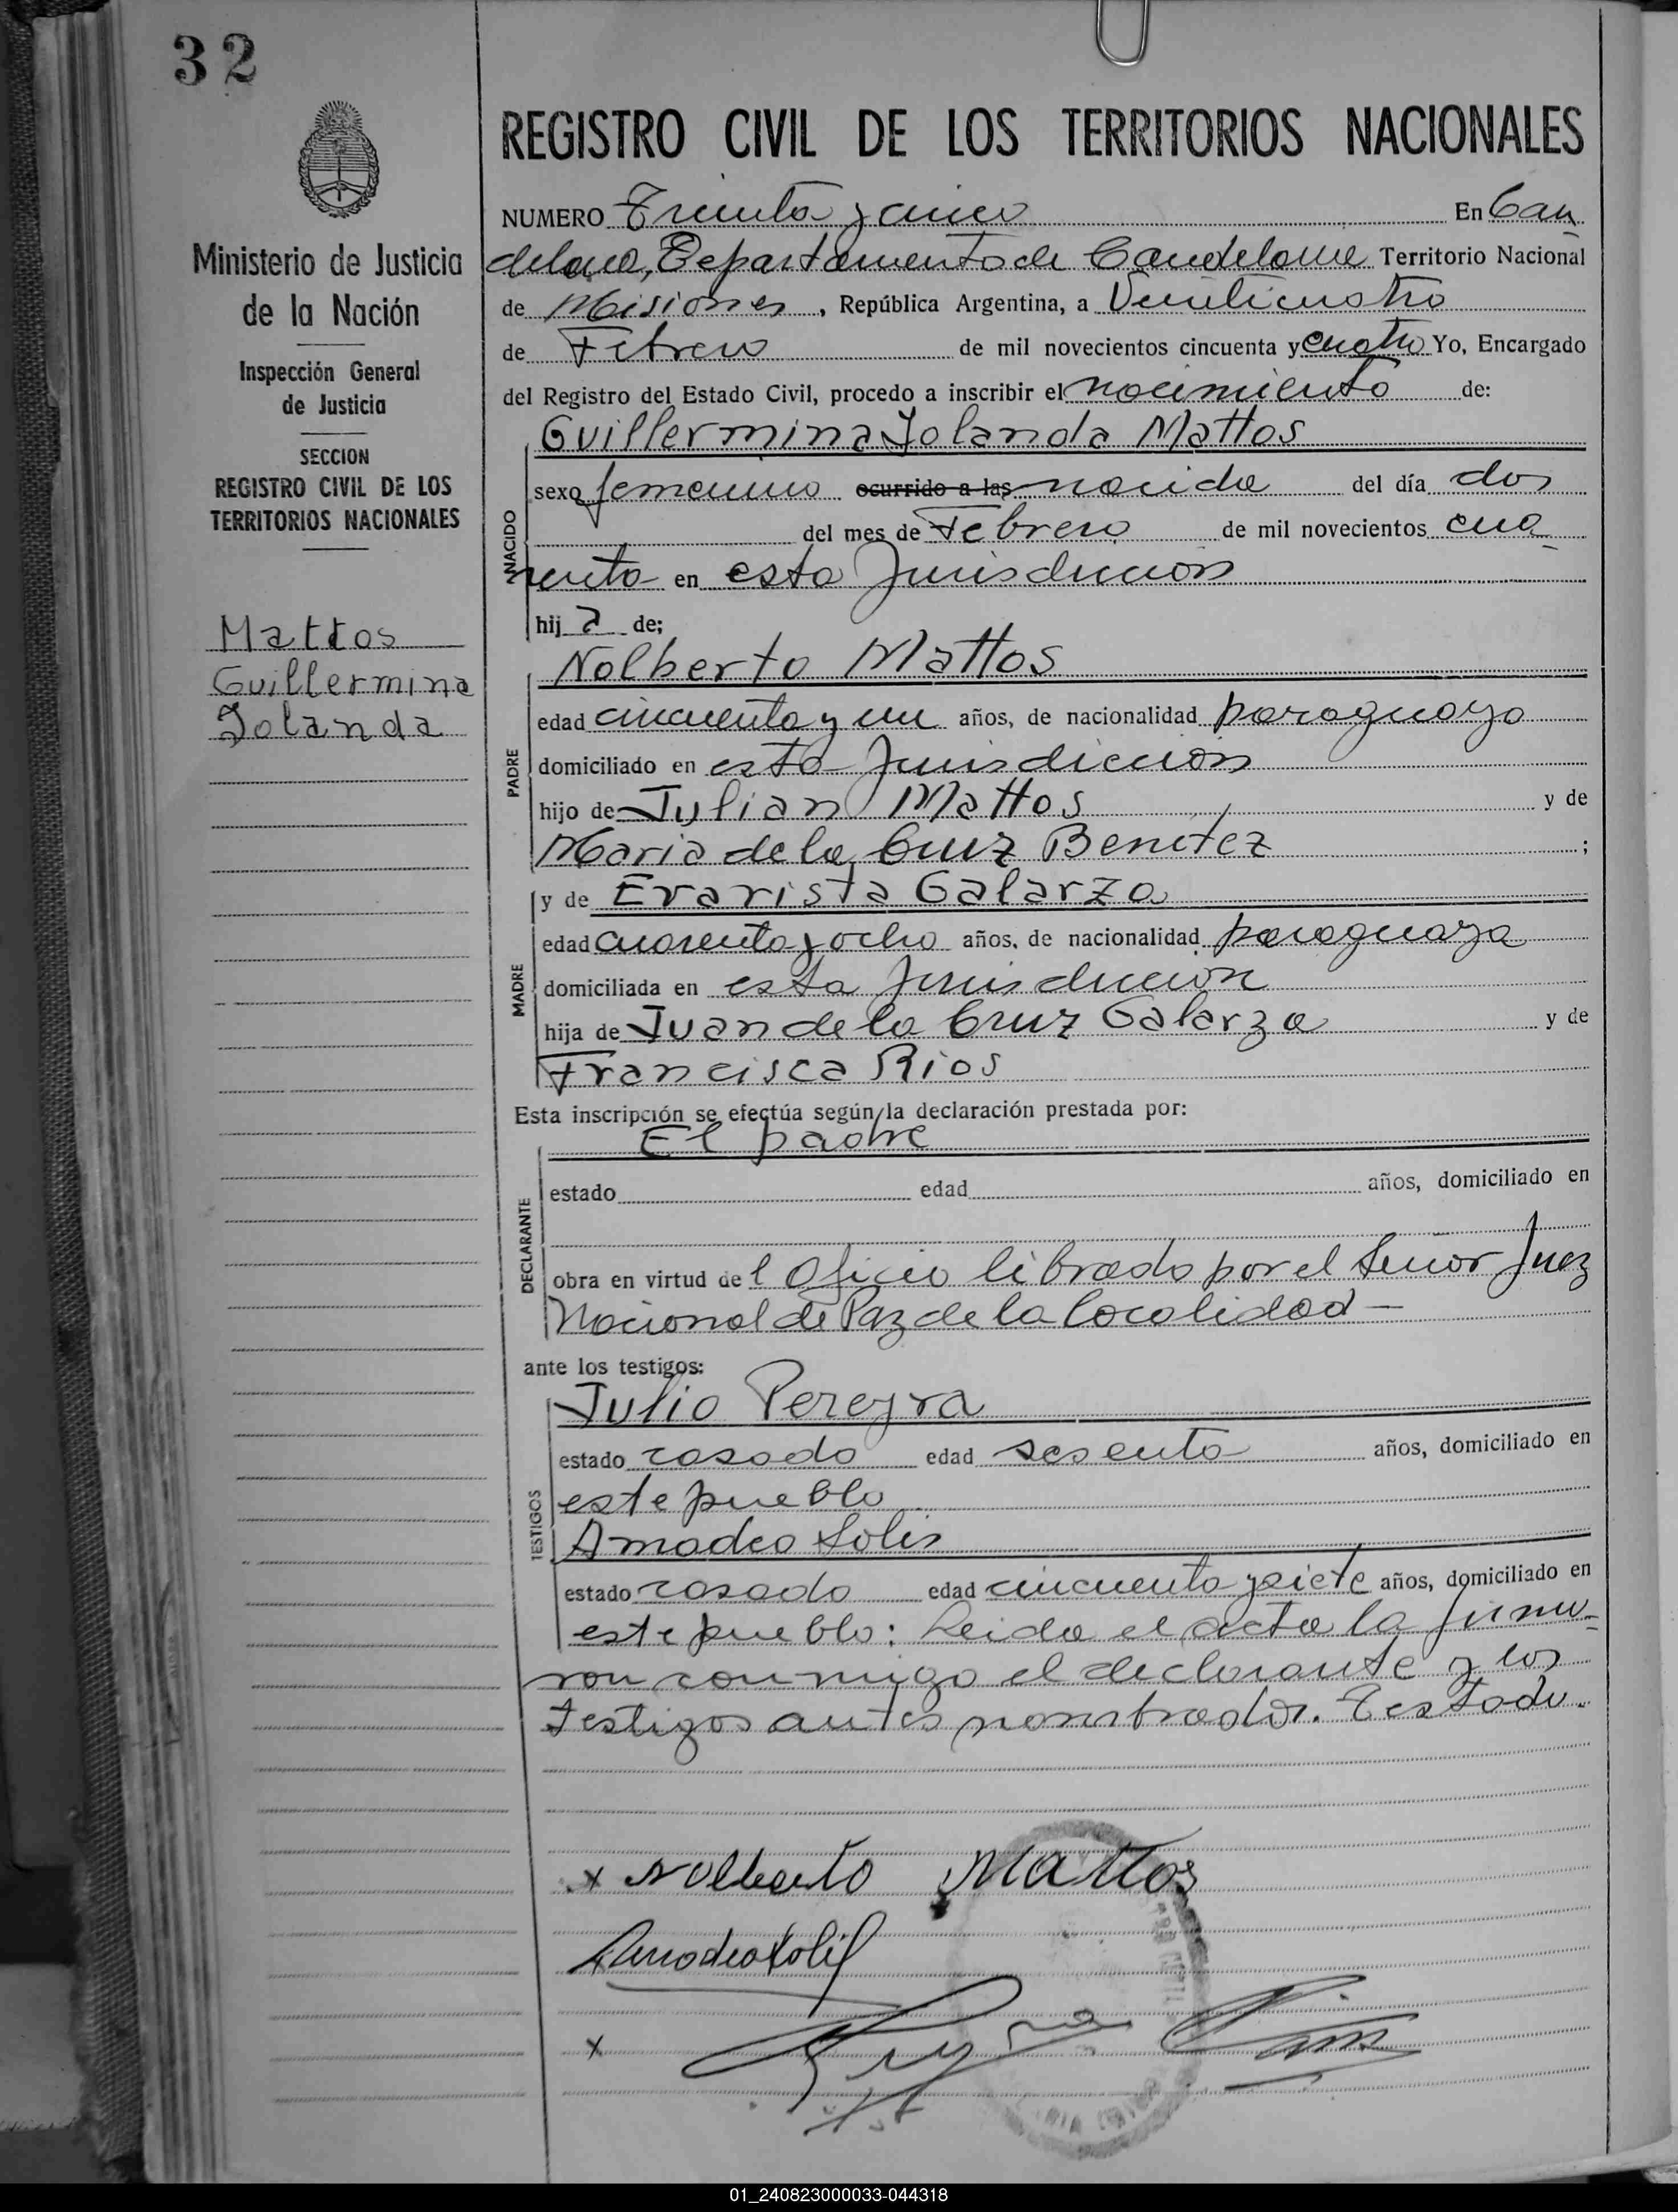 32
REGISTRO CIVIL DE LOS TERRITORIOS NACIONALES
NUMERO Treinta y cinco En Can
delaria, Departamento de Candelaria Territorio Nacional
de Misiones, República Argentina, a Veinticuatro
de Febrero de mil novecientos cincuenta y cuatro Yo, Encargado
del Registro del Estado Civil, procedo a inscribir el nacimiento de:
Guillermina Jolanda Mattos
NACIDO
sexo femenino ocurrido a las nacida del día dos
del mes de Febrero de mil novecientos cua
renta en esta Jurisdiccion
hij a de;
Nolberto Mattos
PADRE
edad cincuenta y un años, de nacionalidad paraguayo
domiciliado en esta Jurisdiccion
hijo de Julian Mattos y de
Maria de la Cruz Benitez ;
y de Evarista Galarza
MADRE
edad cuarenta y ocho años, de nacionalidad paraguaya
domiciliada en esta Jurisdiccion
hija de Juan de la Cruz Galarza y de
Francisca Rios
Esta inscripción se efectúa según la declaración prestada por:
El padre
DECLARANTE
estado edad años, domiciliado en
obra en virtud del Oficio librado por el Señor Juez
Nacional de Paz de la localidad —
ante los testigos:
Julio Pereyra
TESTIGOS
estado casado edad sesenta años, domiciliado en
este pueblo
Amadeo Solis
estado casado edad cincuenta y siete años, domiciliado en
este pueblo: Leida el acta la firma-
ron conmigo el declarante y los
testigos antes nombrados. Testado.
x Nolberto Mattos
Amadeo Solis
x
Ministerio de Justicia
de la Nación
Inspección General
de Justicia
SECCION
REGISTRO CIVIL DE LOS
TERRITORIOS NACIONALES
Mattos
Guillermina
Jolanda
01_240823000033-044318